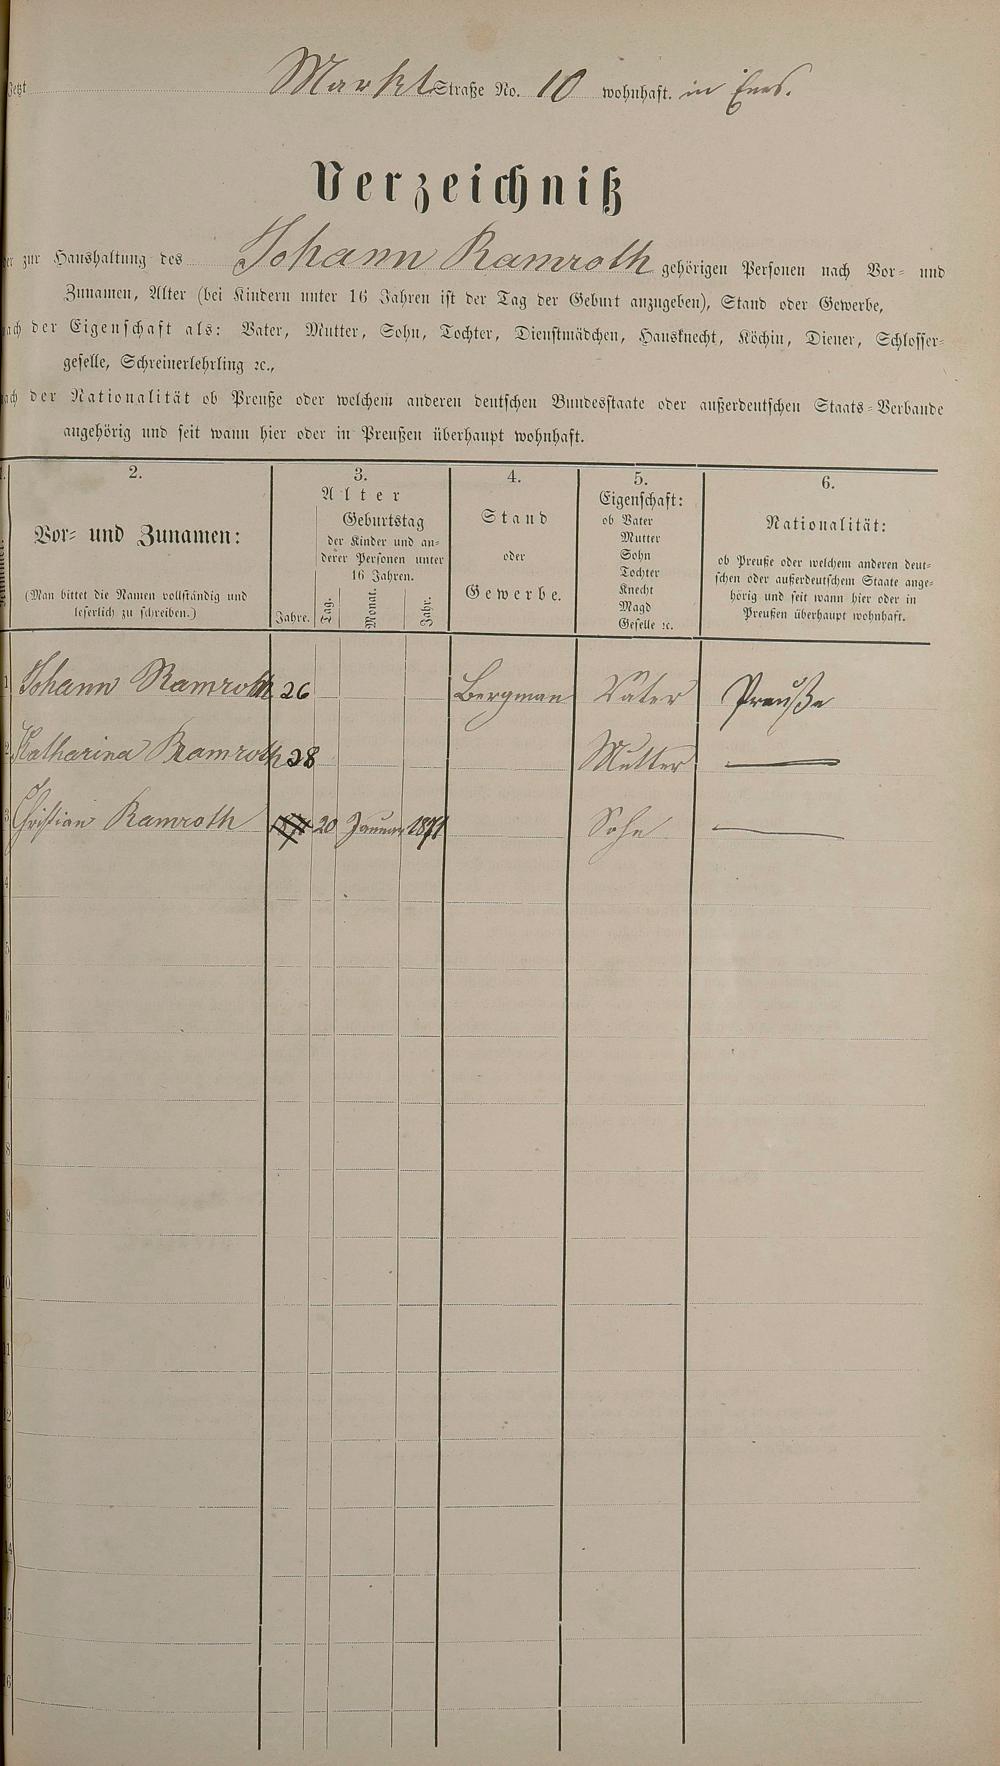 Jetzt Markt Straße No. 10 wohnhaft. in Ems.
Verzeichniß
der zur Haushaltung des Johann Ramroth gehörigen Personen nach Vor- und
Zunamen, Alter (bei Kindern unter 16 Jahren ist der Tag der Geburt anzugeben), Stand oder Gewerbe,
nach der Eigenschaft als: Vater, Mutter, Sohn, Tochter, Dienstmädchen, Hausknecht, Köchin, Diener, Schlosser-
geselle, Schreinerlehrling ꝛc.,
nach der Nationalität ob Preuße oder welchem anderen deutschen Bundesstaate oder außerdeutschen Staats-Verbande
angehörig und seit wann hier oder in Preußen überhaupt wohnhaft.
1.
Nummer.
2.
Vor- und Zunamen:
(Man bittet die Namen vollständig und
leserlich zu schreiben.)
3.
Alter
Jahre.
Geburtstag
der Kinder und an-
derer Personen unter
16 Jahren.
Tag. Monat. Jahr.
4.
Stand
oder
Gewerbe.
5.
Eigenschaft:
ob Vater
Mutter
Sohn
Tochter
Knecht
Magd
Geselle ꝛc.
6.
Nationalität:
ob Preuße oder welchem anderen deut-
schen oder außerdeutschem Staate ange-
hörig und seit wann hier oder in
Preußen überhaupt wohnhaft.
1 Johann Ramroth 26 Bergman Vater Preuße
2 Katharina Ramroth 28 Mutter —
3 Christian Ramroth 20 Januar 1871 Sohn —
4
5
6
7
8
9
10
11
12
13
14
15
16